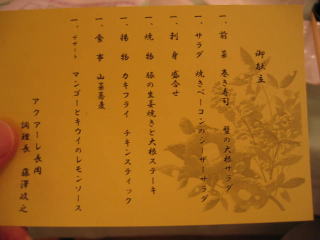 御献立
一、前菜 巻き寿司 蟹の大根サラダ
一、サラダ 焼きベーコンのシーザーサラダ
一、刺身 盛合せ
一、焼物 豚の生姜焼きと大根ステーキ
一、揚物 カキフライ チキンスティック
一、食事 山菜蕎麦
一、デザート マンゴーとキウイのレモンソース
アクアーレ長岡
調理長 藤澤